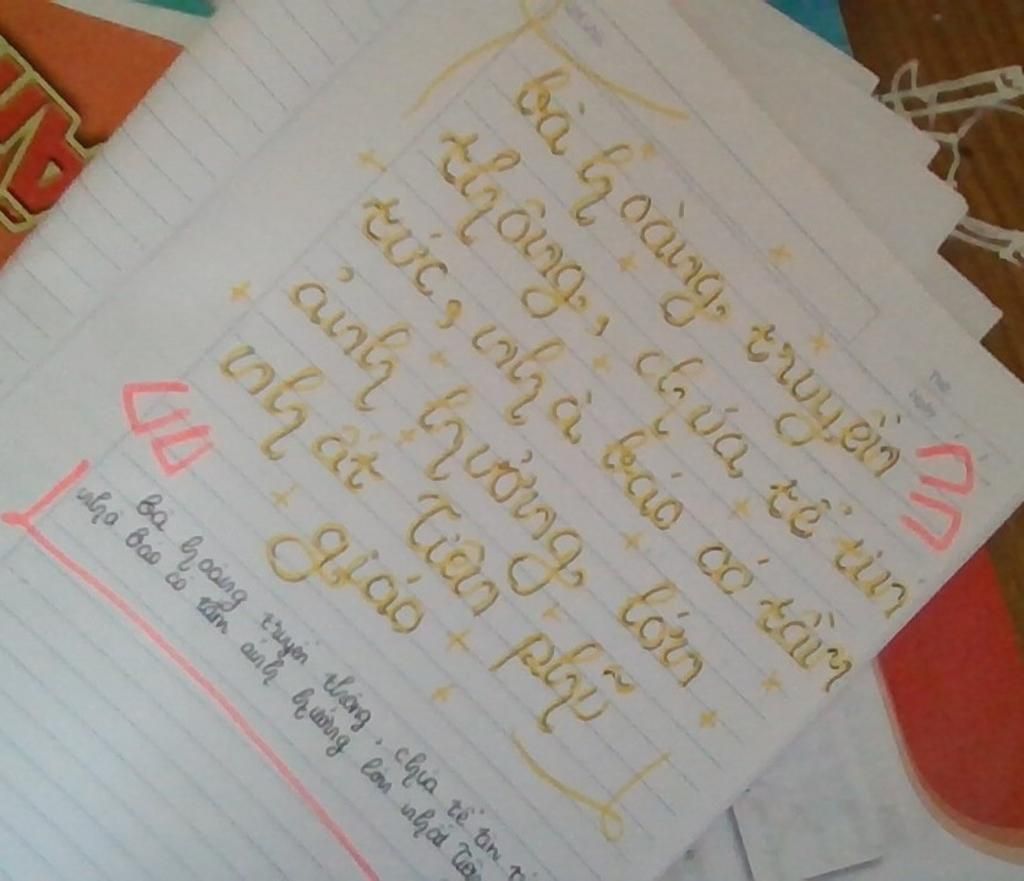 bà hoàng truyền
thông, chúa tể tin
tức, nhà báo có tầm
ảnh hưởng lớn
nhất Tiên phũ
giáo
Bà hoàng truyền thông, chúa tể tin
nhà báo có tầm ảnh hưởng lớn nhất Tiên